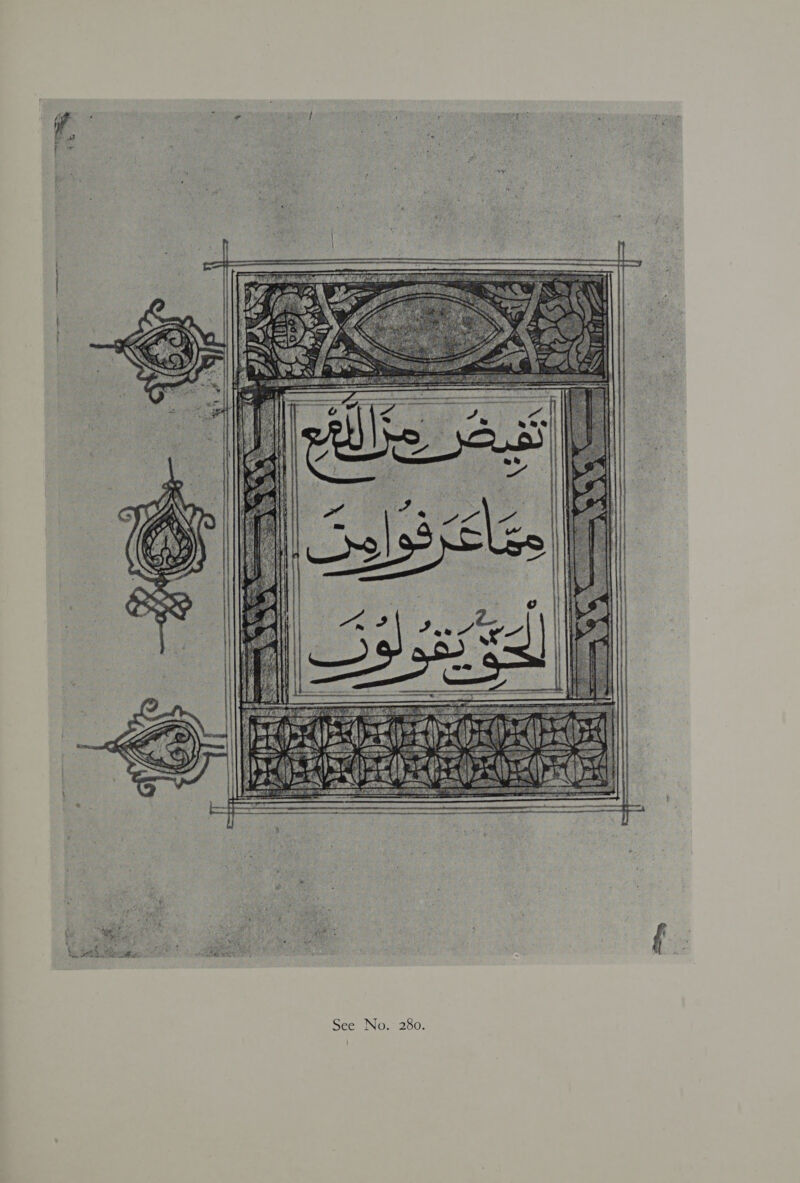 تَفِيضُ مِنَ الدَّمْعِ
مِمَّا عَرَفُوا مِنَ
الْحَقِّ يَقُولُونَ
See No. 280.